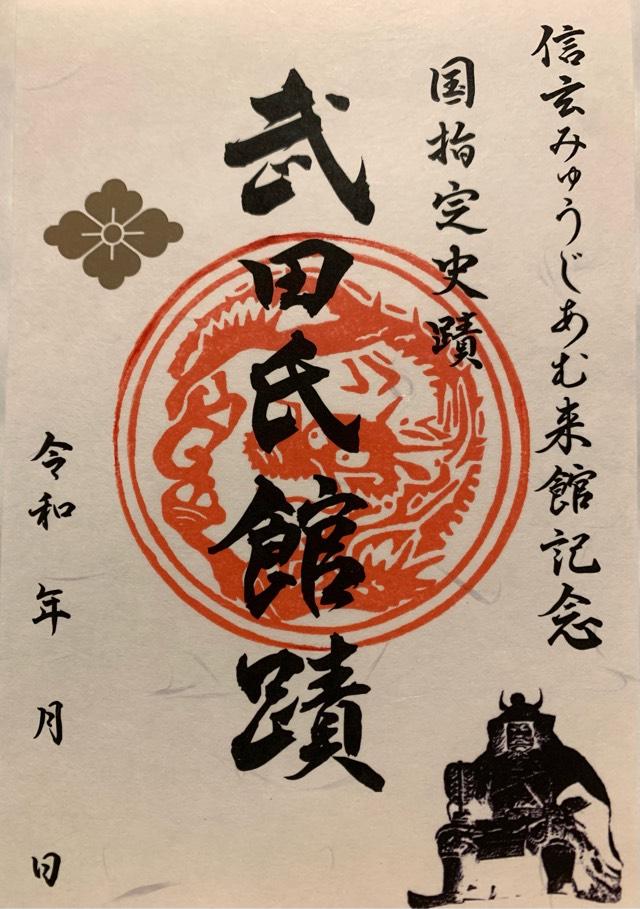 信玄みゅうじあむ来館記念
国指定史蹟
武田氏館蹟
令和 年 月 日